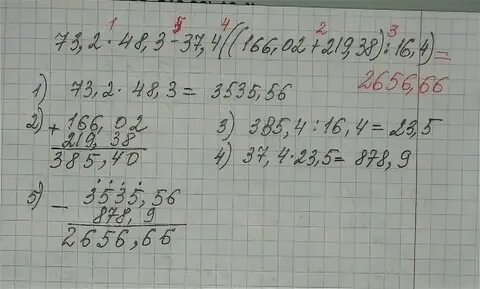 1 5 4 2 3
73,2 · 48,3 - 37,4((166,02 + 219,38) : 16,4) =
2656,66
1) 73,2 · 48,3 = 3535,56
2) + 166,02
219,38
385,40
3) 385,4 : 16,4 = 23,5
4) 37,4 · 23,5 = 878,9
5) - 3535,56
878,9
2656,66